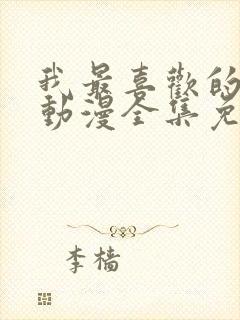 我最喜歡的
動漫全集免
李檣